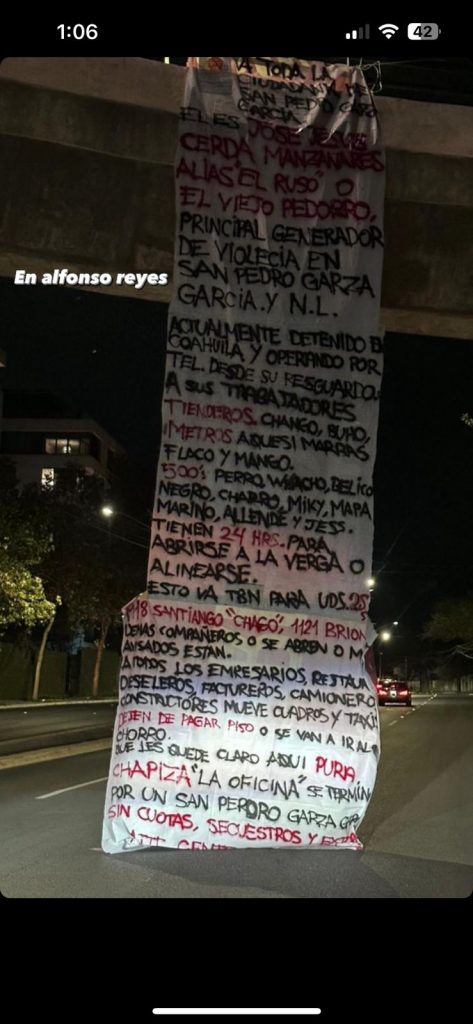 1:06
42
A TODA LA
CIUDADANIA DE
SAN PEDRO GARZA
GARCIA
EL ES JOSE JESUS
CERDA MANZANARES
ALIAS "EL RUSO" O
EL VIEJO PEDORRO,
PRINCIPAL GENERADOR
DE VIOLECIA EN
SAN PEDRO GARZA
GARCIA. Y N.L.
En alfonso reyes
ACTUALMENTE DETENIDO EN
COAHUILA Y OPERANDO POR
TEL. DESDE SU RESGUARDO.
A SUS TRABAJADORES
TIENDEROS. CHANGO, BUHO,
METROS AQUESI MARRAS
FLACO Y MANGO.
500's PERRO, BELICO
NEGRO, CHARRO, MIKY, MAPA
MARINO, ALLENDE Y JESS.
TIENEN 24 HRS. PARA
ABRIRSE A LA VERGA O
ALINEARSE.
ESTO VA TBN PARA UDS.
SANTIANGO "CHAGO", 1121 BRION
DEMAS COMPAÑEROS O SE ABREN O M
AVISADOS ESTAN.
A TODOS LOS EMRESARIOS, RESTAU
DESELEROS, FACTUREROS, CAMIONERO
CONSTRUCTORES MUEVE CUADROS Y
DEJEN DE PAGAR PISO O SE VAN A IR AL
CHORRO.
QUE LES QUEDE CLARO AQUI PURA
CHAPIZA "LA OFICINA" SE TERMIN
POR UN SAN PERDRO GARZA
SIN CUOTAS, SECUESTROS Y